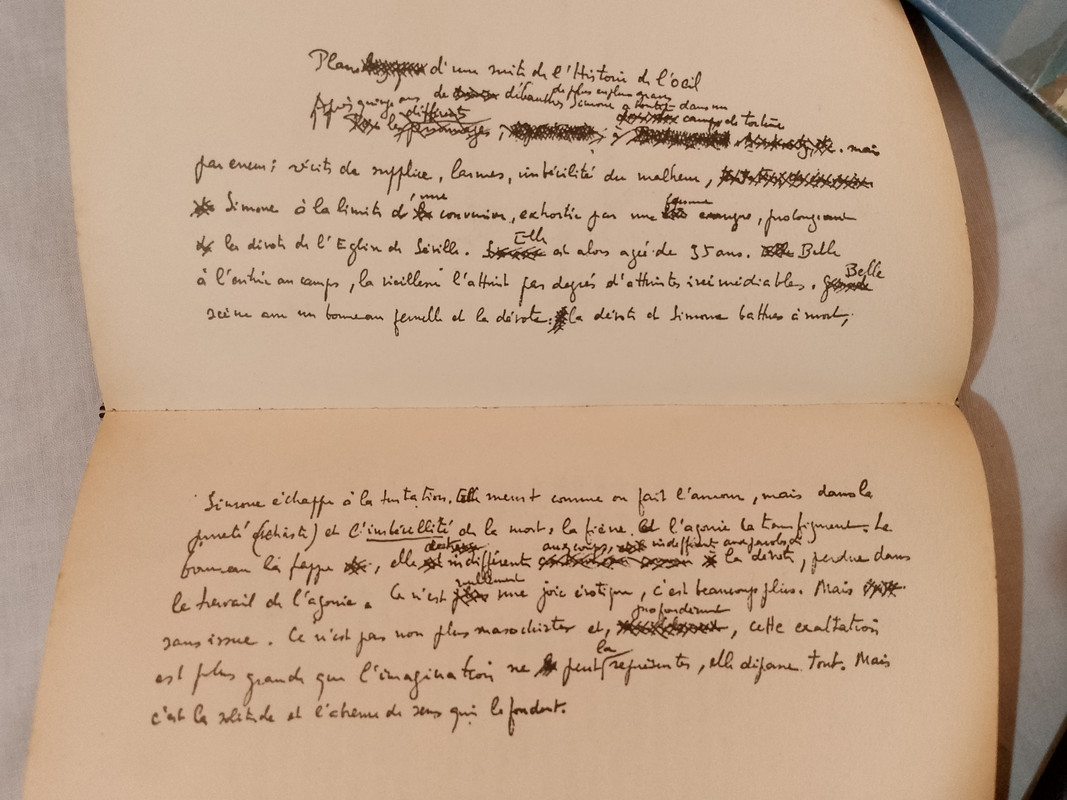 Plan d'une suite de l'Histoire de l'œil
Après quinze ans de débauches de plus en plus graves Simone aboutit dans un
différents camp de torture
les personnages, à mais
par erreur ; récits de supplice, larmes, imbécillité du malheur,
Simone à la limite d'une conversion, exhortée par une femme exsangue, prolongeant
les dévots de l'Eglise de Séville. Elle est alors agée de 35 ans. Belle
à l'entrée au camp, la vieillesse l'atteint par degrés d'atteintes irrémédiables. Belle
scène avec un bourreau femelle et la dévote : la dévote et Simone battues à mort,
Simone échappe à la tentation. Elle meurt comme on fait l'amour, mais dans la
pureté (chaste) et l'imbécillité de la mort : la fièvre et l'agonie la transfigurent. Le
bourreau la frappe, elle est indifférente aux coups, indifférente aux paroles de la dévote, perdue dans
le travail de l'agonie. Ce n'est nullement une joie érotique, c'est beaucoup plus. Mais
sans issue. Ce n'est pas non plus masochiste et, profondément, cette exaltation
est plus grande que l'imagination ne peut la représenter, elle dépasse tout. Mais
c'est la solitude et l'absence de sens qui la fondent.